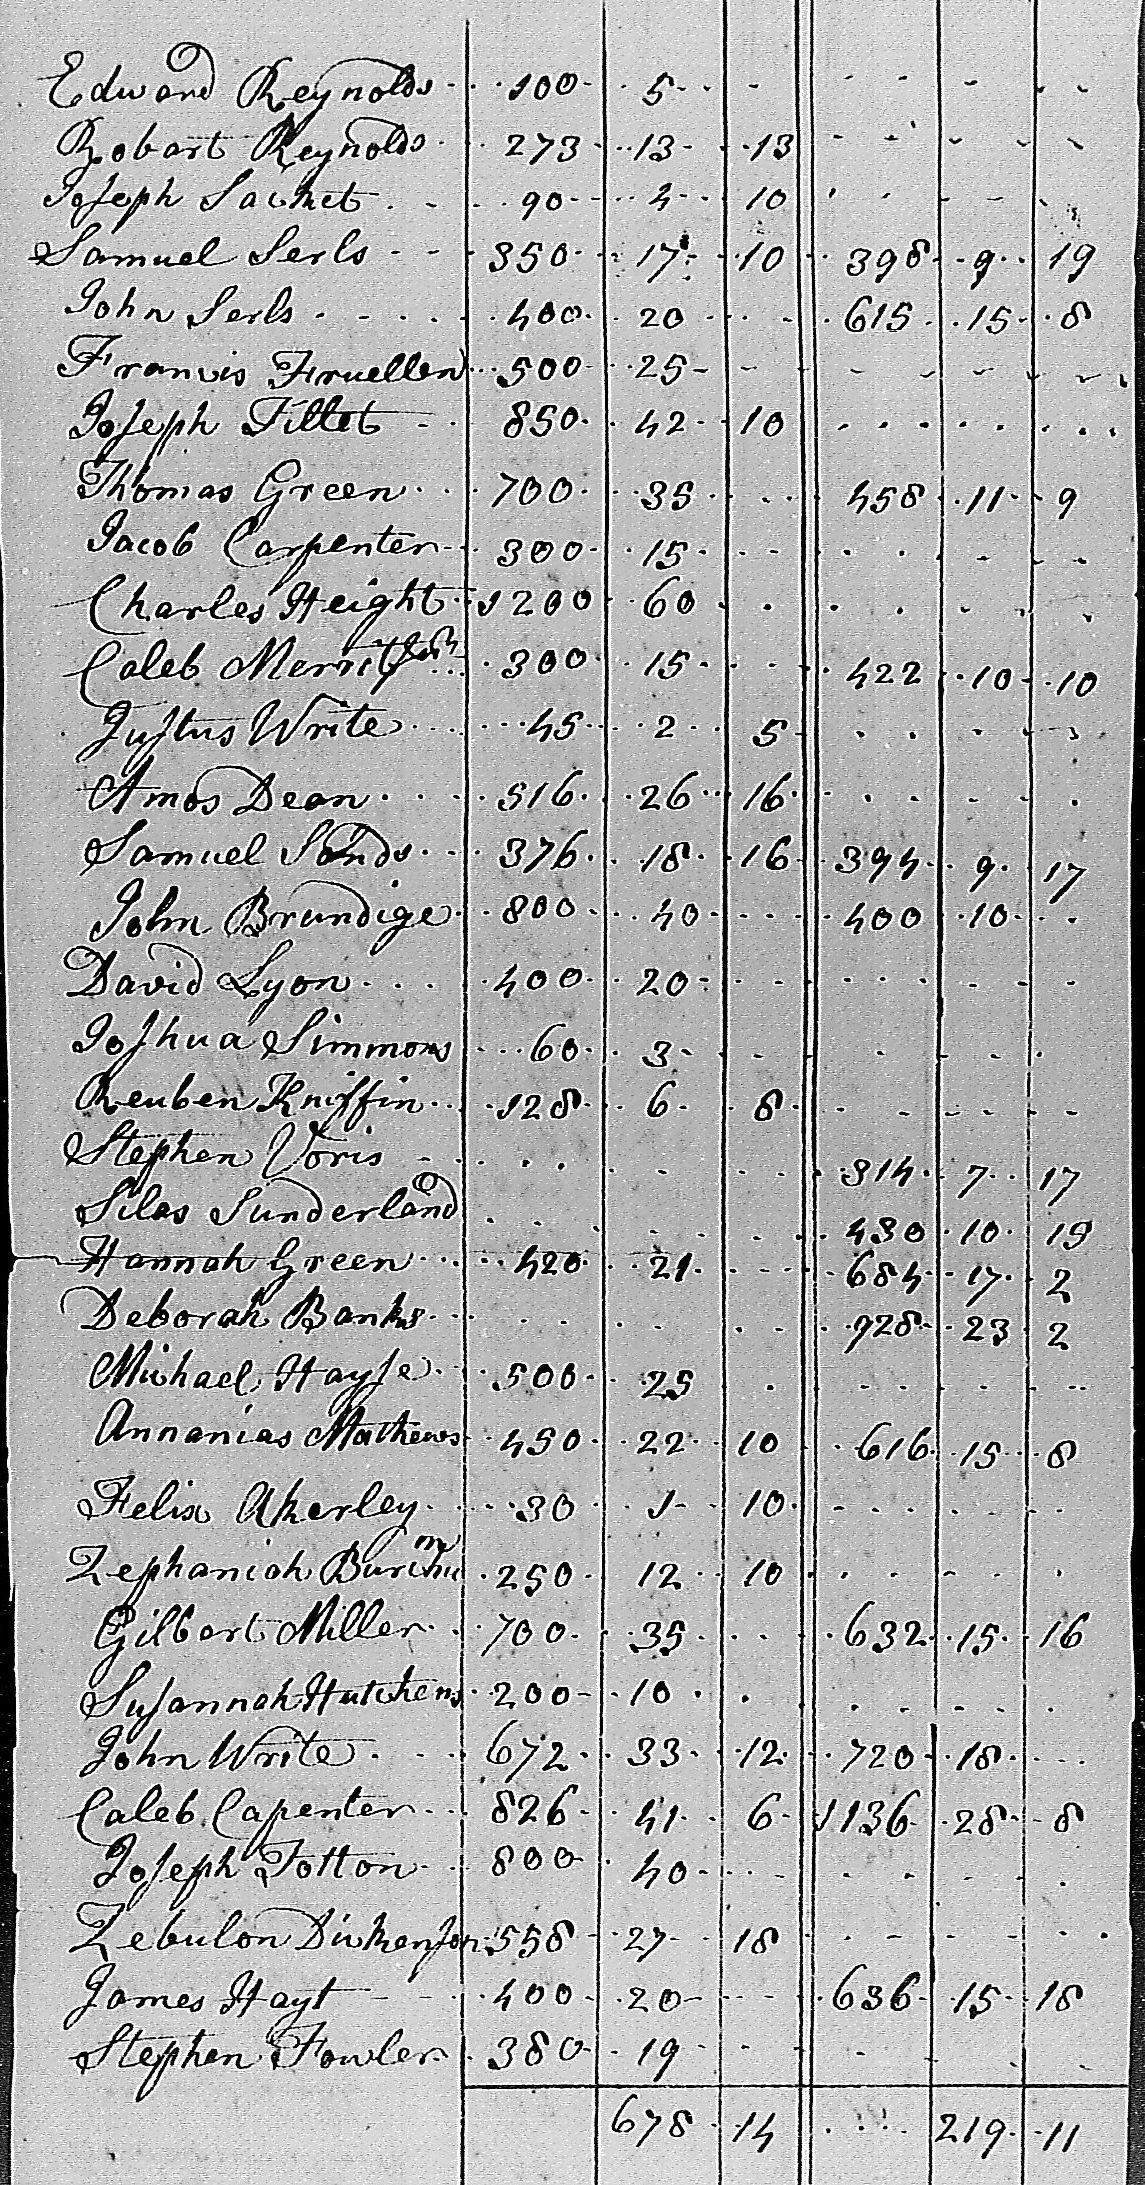 Edward Reynolds 100 5
Robart Reynolds 273 13 13
Joseph Sacket 90 4 10
Samuel Serls 350 17 10 398 9 19
John Serls 400 20 615 15 8
Francis Fruellen 500 25
Joseph Tillet 850 42 10
Thomas Green 700 35 458 11 9
Jacob Carpenter 300 15
Charles Height 1200 60
Caleb Merrit 300 15 422 10 10
Justus Write 45 2 5
Amos Dean 516 26 16
Samuel Sands 376 18 16 394 9 17
John Brundige 800 40 400 10
David Lyon 400 20
Joshua Simmons 60 3
Reuben Kniffin 128 6 8
Stephen Voris 314 7 17
Silas Sunderland 430 10 19
Hannah Green 420 21 684 17 2
Deborah Banks 928 23 2
Michael Hayse 500 25
Annanias Mathews 450 22 10 616 15 8
Felix Akerley 30 1 10
Zephaniah 250 12 10
Gilbart Miller 700 35 632 15 16
Susannah Hutchens 200 10
John Write 672 33 12 720 18
Caleb Capenter 826 41 6 1136 28 8
Joseph Totton 800 40
Zebulon Dickenson 558 27 18
James Hayt 400 20 636 15 18
Stephen Fowler 380 19
678 14 219 11